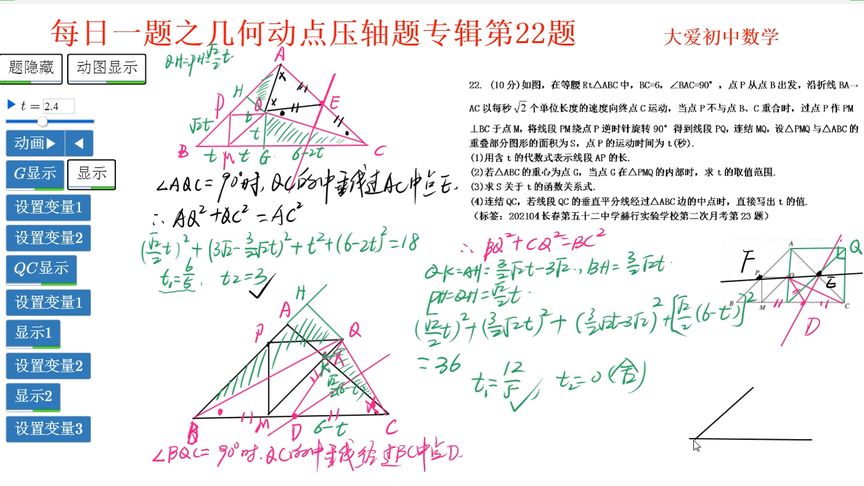 每日一题之几何动点压轴题专辑第22题
大爱初中数学
题隐藏
动图显示
t = 2.4
动画▶
◀
G显示
显示
设置变量1
设置变量2
QC显示
设置变量1
显示1
设置变量2
显示2
设置变量3
22. (10 分)如图，在等腰 Rt△ABC 中，BC=6，∠BAC=90°，点 P 从点 B 出发，沿折线 BA—
AC 以每秒 √2 个单位长度的速度向终点 C 运动，当点 P 不与点 B、C 重合时，过点 P 作 PM
⊥BC 于点 M，将线段 PM 绕点 P 逆时针旋转 90° 得到线段 PQ，连结 MQ，设△PMQ 与△ABC 的
重叠部分图形的面积为 S，点 P 的运动时间为 t (秒).
(1)用含 t 的代数式表示线段 AP 的长.
(2)若△ABC 的重心为点 G，当点 G 在△PMQ 的内部时，求 t 的取值范围.
(3)求 S 关于 t 的函数关系式.
(4)连结 QC，若线段 QC 的垂直平分线经过△ABC 边的中点时，直接写出 t 的值.
(标签：202104 长春第五十二中学赫行实验学校第二次月考第 23 题)
QH=PH=√2/2 t
A
H
P
Q
E
√2t
t
t
B
t
M
t
G
6-2t
C
∠AQC=90°时, QC的中垂线过AC中点E.
∴ AQ²+QC²=AC²
(√2/2 t)²+(3√2-3/2 √2t)²+t²+(6-2t)²=18
t₁=6/5, t₂=3
∴ BQ²+CQ²=BC²
QK=AH=3/2 √2t-3√2, BH=3/2 √2t.
PH=QH=√2/2 t.
(√2/2 t)²+(3/2 √2t)²+(3/2 √2t-3√2)²+[√2/2 (6-t)]²
=36
t₁=12/5, t₂=0(舍)
H
A
P
Q
K
B
M
D
6-t
C
∠BQC=90°时, QC的中垂线经过BC中点D.
A
Q
F
P
E
B
M
C
D